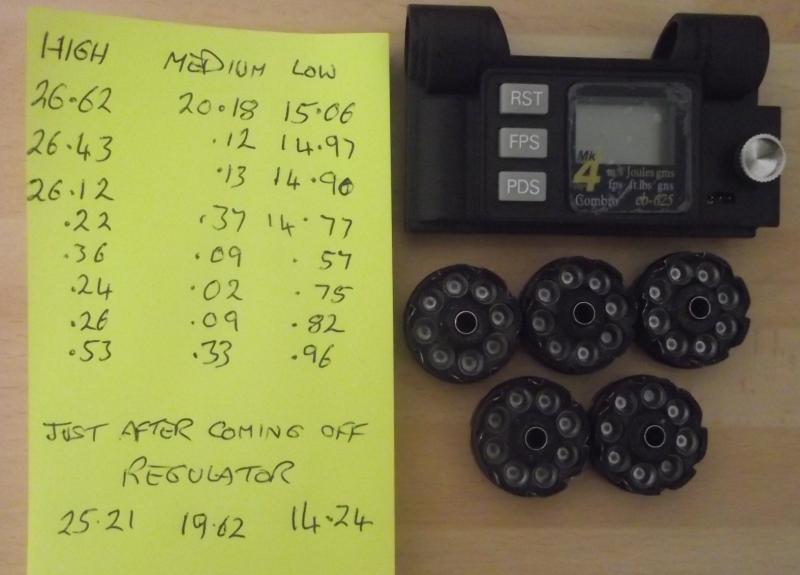 HIGH MEDIUM LOW
26.62 20.18 15.06
26.43 .12 14.97
26.12 .13 14.90
.22 .37 14.77
.36 .09 .57
.24 .02 .75
.26 .09 .82
.53 .33 .96
JUST AFTER COMING OFF
REGULATOR
25.21 19.62 14.24
RST
FPS
PDS
Mk
4
m/s Joules gms
fps ft.lbs gns
Combro cb-625